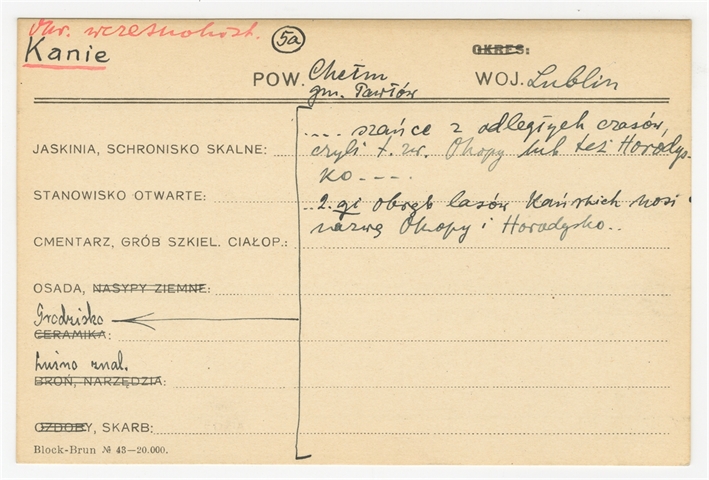 Okr. wczesnohist.
Kanie
5a
OKRES:
POW. Chełm
gm. Pawłów
WOJ. Lublin
.... szańce z odległych czasów,
JASKINIA, SCHRONISKO SKALNE: czyli t. zw. Okopy lub też Horodys-
ko ----
STANOWISKO OTWARTE: ..2-gi obręb lasów Kańskich nosi
CMENTARZ, GRÓB SZKIEL. CIAŁOP.: nazwę Okopy i Horodysko..
OSADA, NASYPY ZIEMNE:
Grodzisko
CERAMIKA:
Luźno znal.
BROŃ, NARZĘDZIA:
OZDOBY, SKARB:
Block-Brun № 43—20.000.